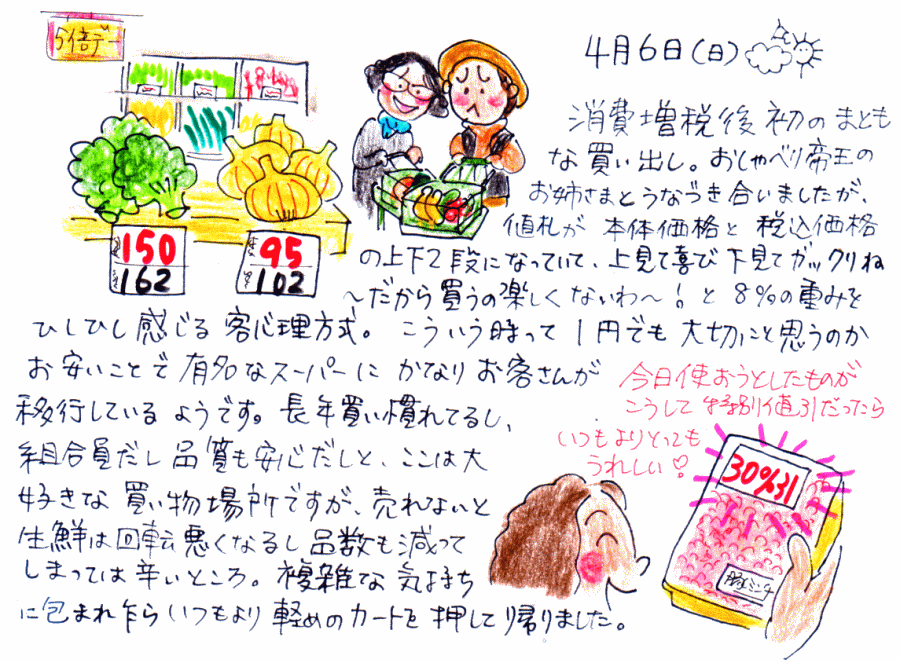 5倍デー
4月6日(日)
消費増税後初のまとも
な買い出し。おしゃべり帝王の
お姉さまとうなづき合いましたが、
値札が 本体価格と税込価格
の上下2段になっていて、上見て喜び下見てガックリね
〜だから買うの楽しくないわ〜!と8%の重みを
ひしひし感じる客心理方式。こういう時って1円でも大切にと思うのか
お安いことで有名なスーパーにかなりお客さんが
移行しているようです。長年買い慣れてるし、
組合員だし品質も安心だしと、ここは大
好きな買い物場所ですが、売れないと
生鮮は回転悪くなるし品数も減って
しまっては辛いところ。複雑な気持ち
に包まれ乍らいつもより軽めのカートを押して帰りました。
150
162
95
102
今日使おうとしたものが
こうして特別値引だったら
いつもよりとっても
うれしい♡
30%引
豚ミンチ